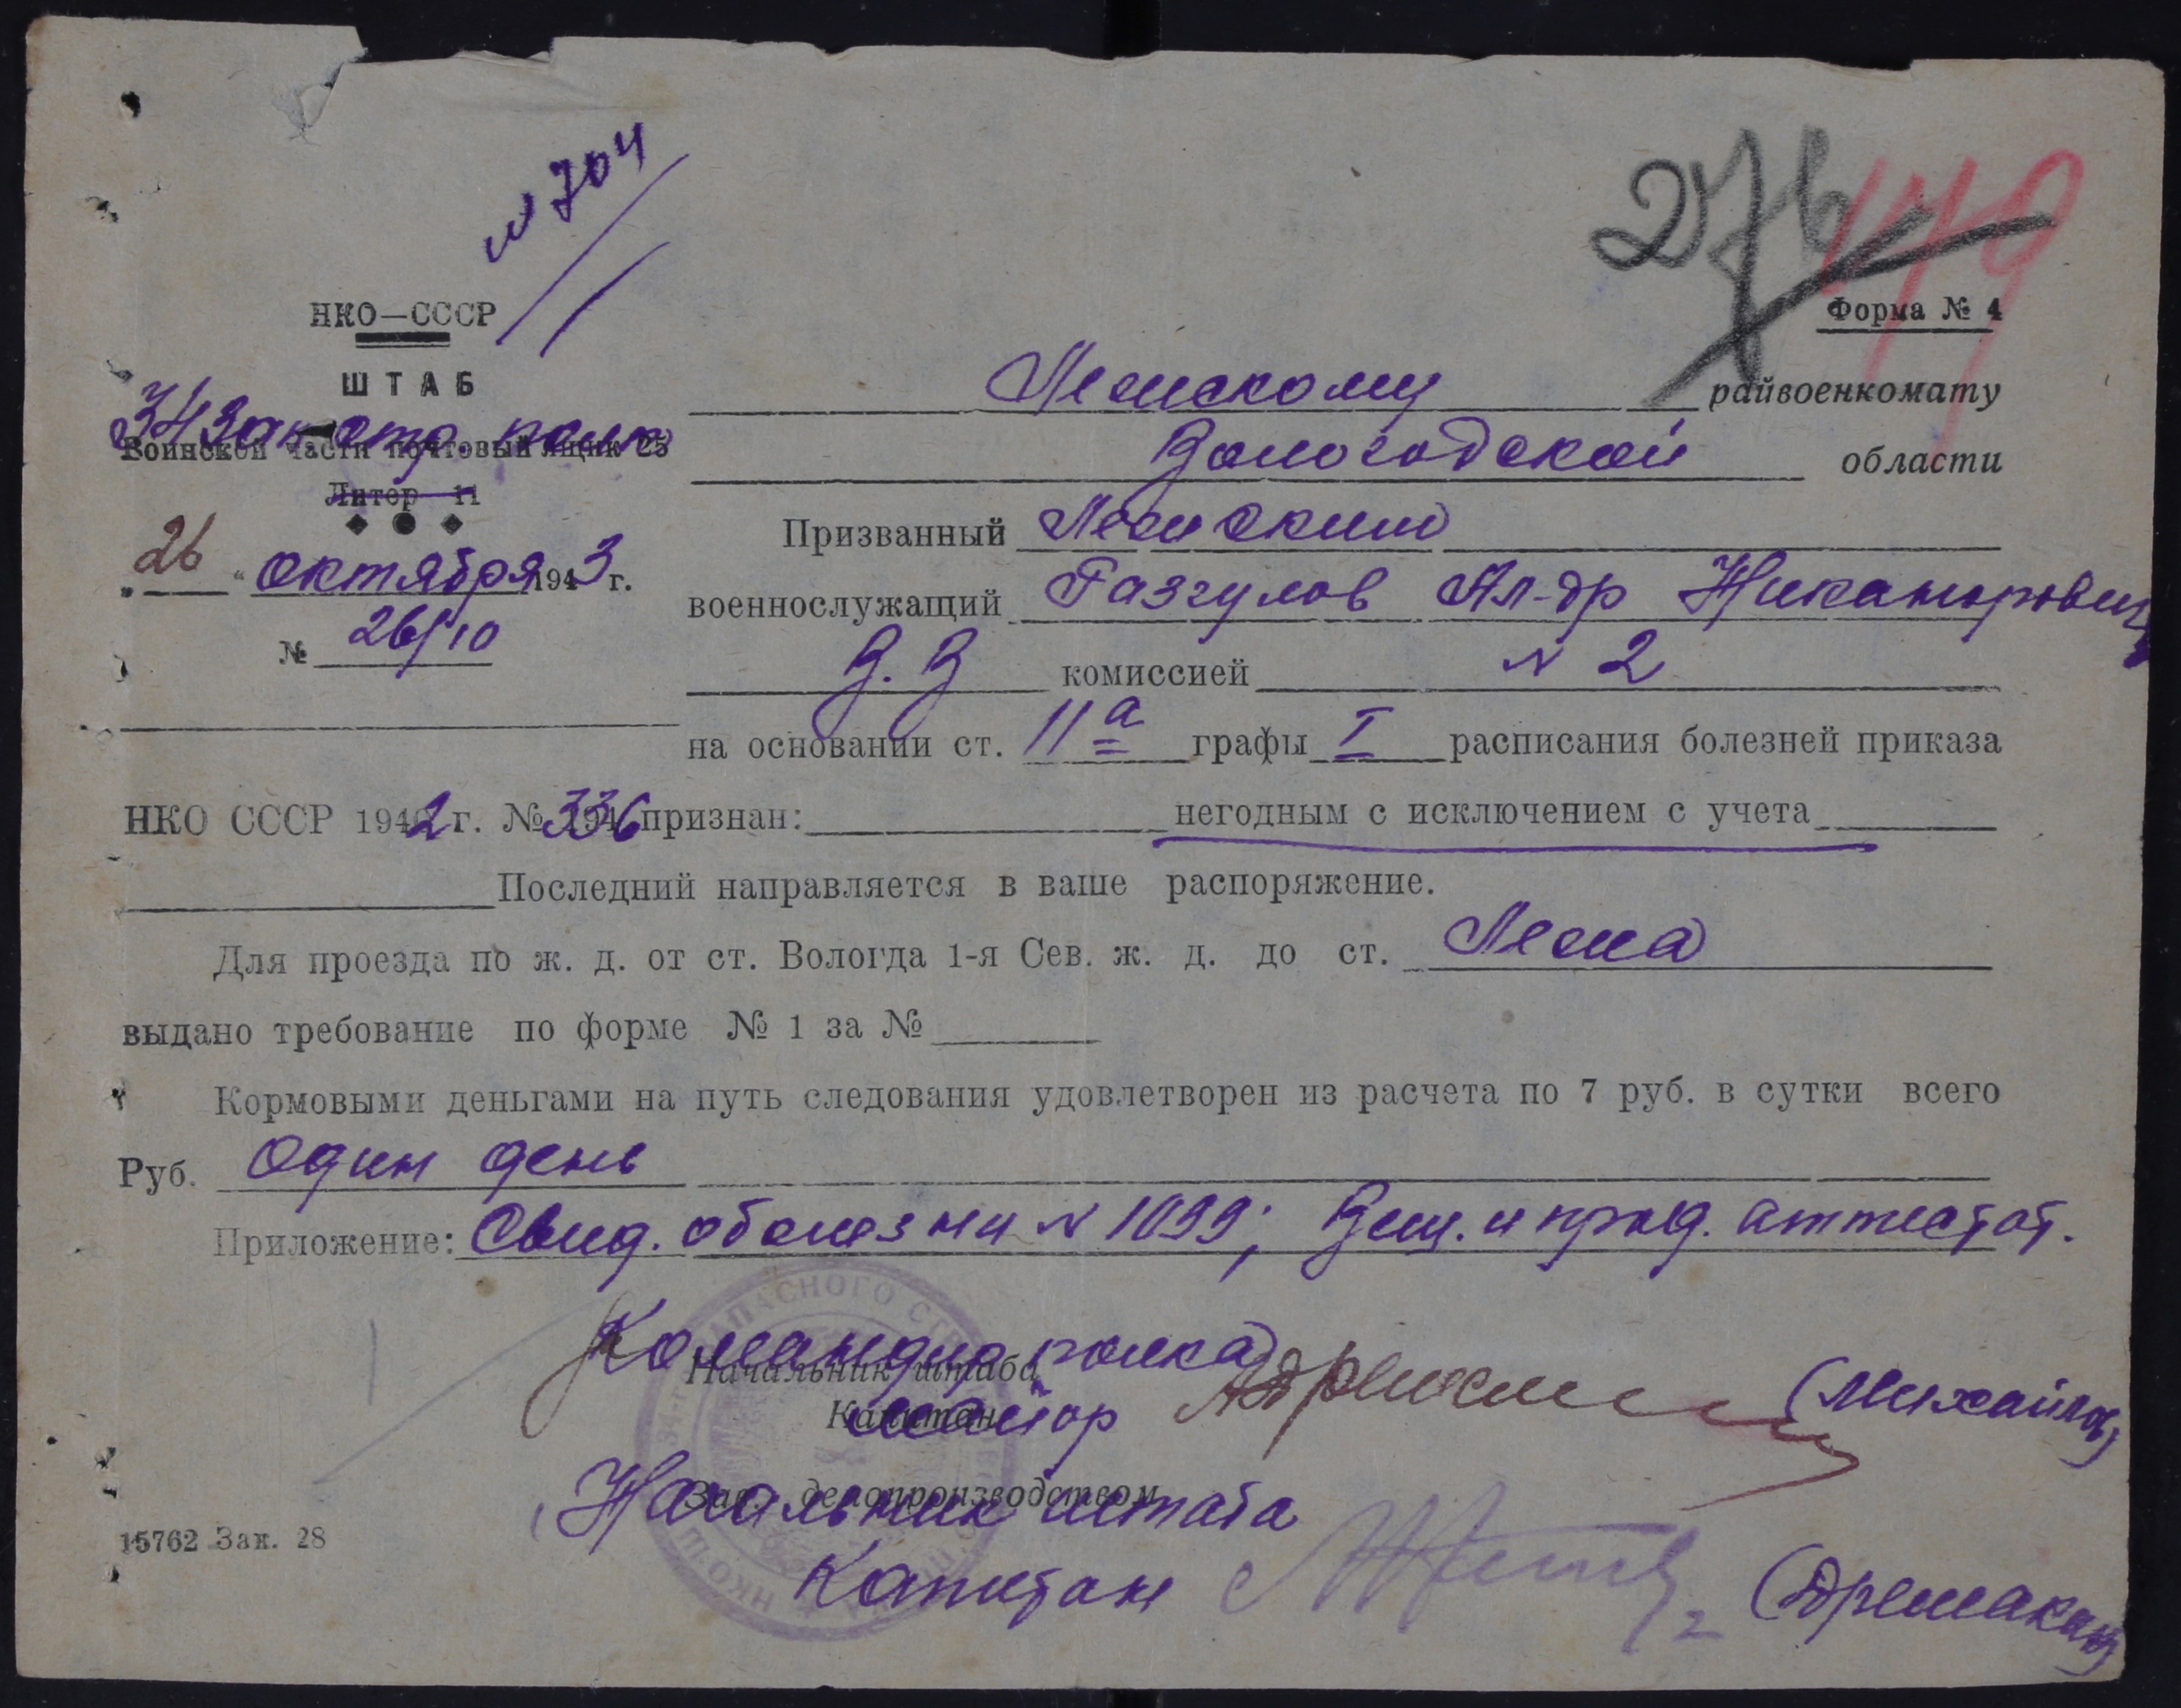 № 704
276
179
НКО—СССР
Форма № 4
ШТАБ
34 Зап. стр. полк
Воинской части почтовый ящик 25
Литер 11
Лежскому райвоенкомату
Вологодской области
„26“ октября 1943 г.
№ 26/10
Призванный Лежским
военнослужащий Разгулов Ал-др Никанорович
В.В комиссией № 2
на основании ст. 11а графы I расписания болезней приказа
НКО СССР 1942 г. № 336 признан: негодным с исключением с учета
Последний направляется в ваше распоряжение.
Для проезда по ж. д. от ст. Вологда 1-я Сев. ж. д. до ст. Лежа
выдано требование по форме № 1 за №
Кормовыми деньгами на путь следования удовлетворен из расчета по 7 руб. в сутки всего
Руб. Один день
Приложение: Свид. о болезни № 1099; Вещ. и прод. аттестат.
Командир полка
Начальник штаба
Капитан
майор (Михайлов)
Зав. делопроизводством
Начальник штаба
Капитан
15762 Зак. 28